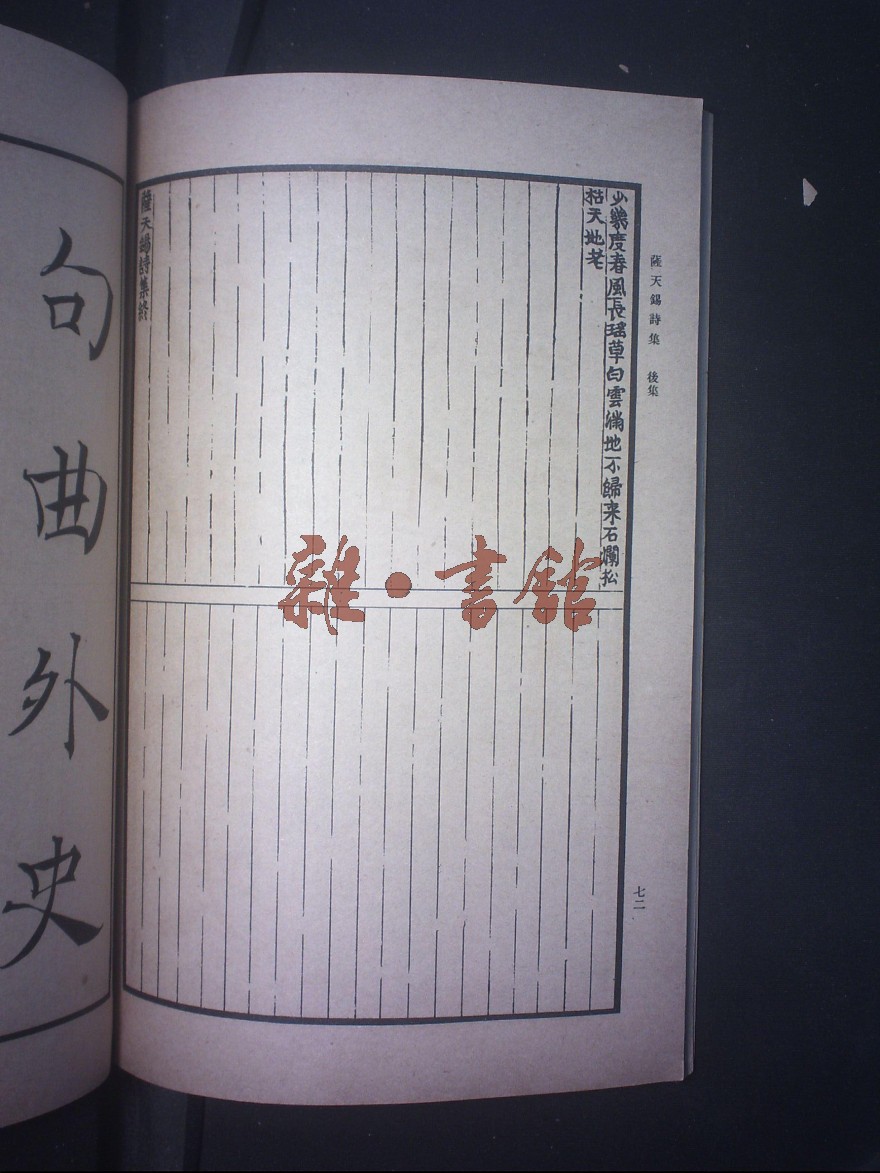 薩天錫詩集 後集
少幾度春風長瑶草白雲滿地不歸来石爛松
枯天地老
薩天錫詩集終
七二
句曲外史
雜·書館